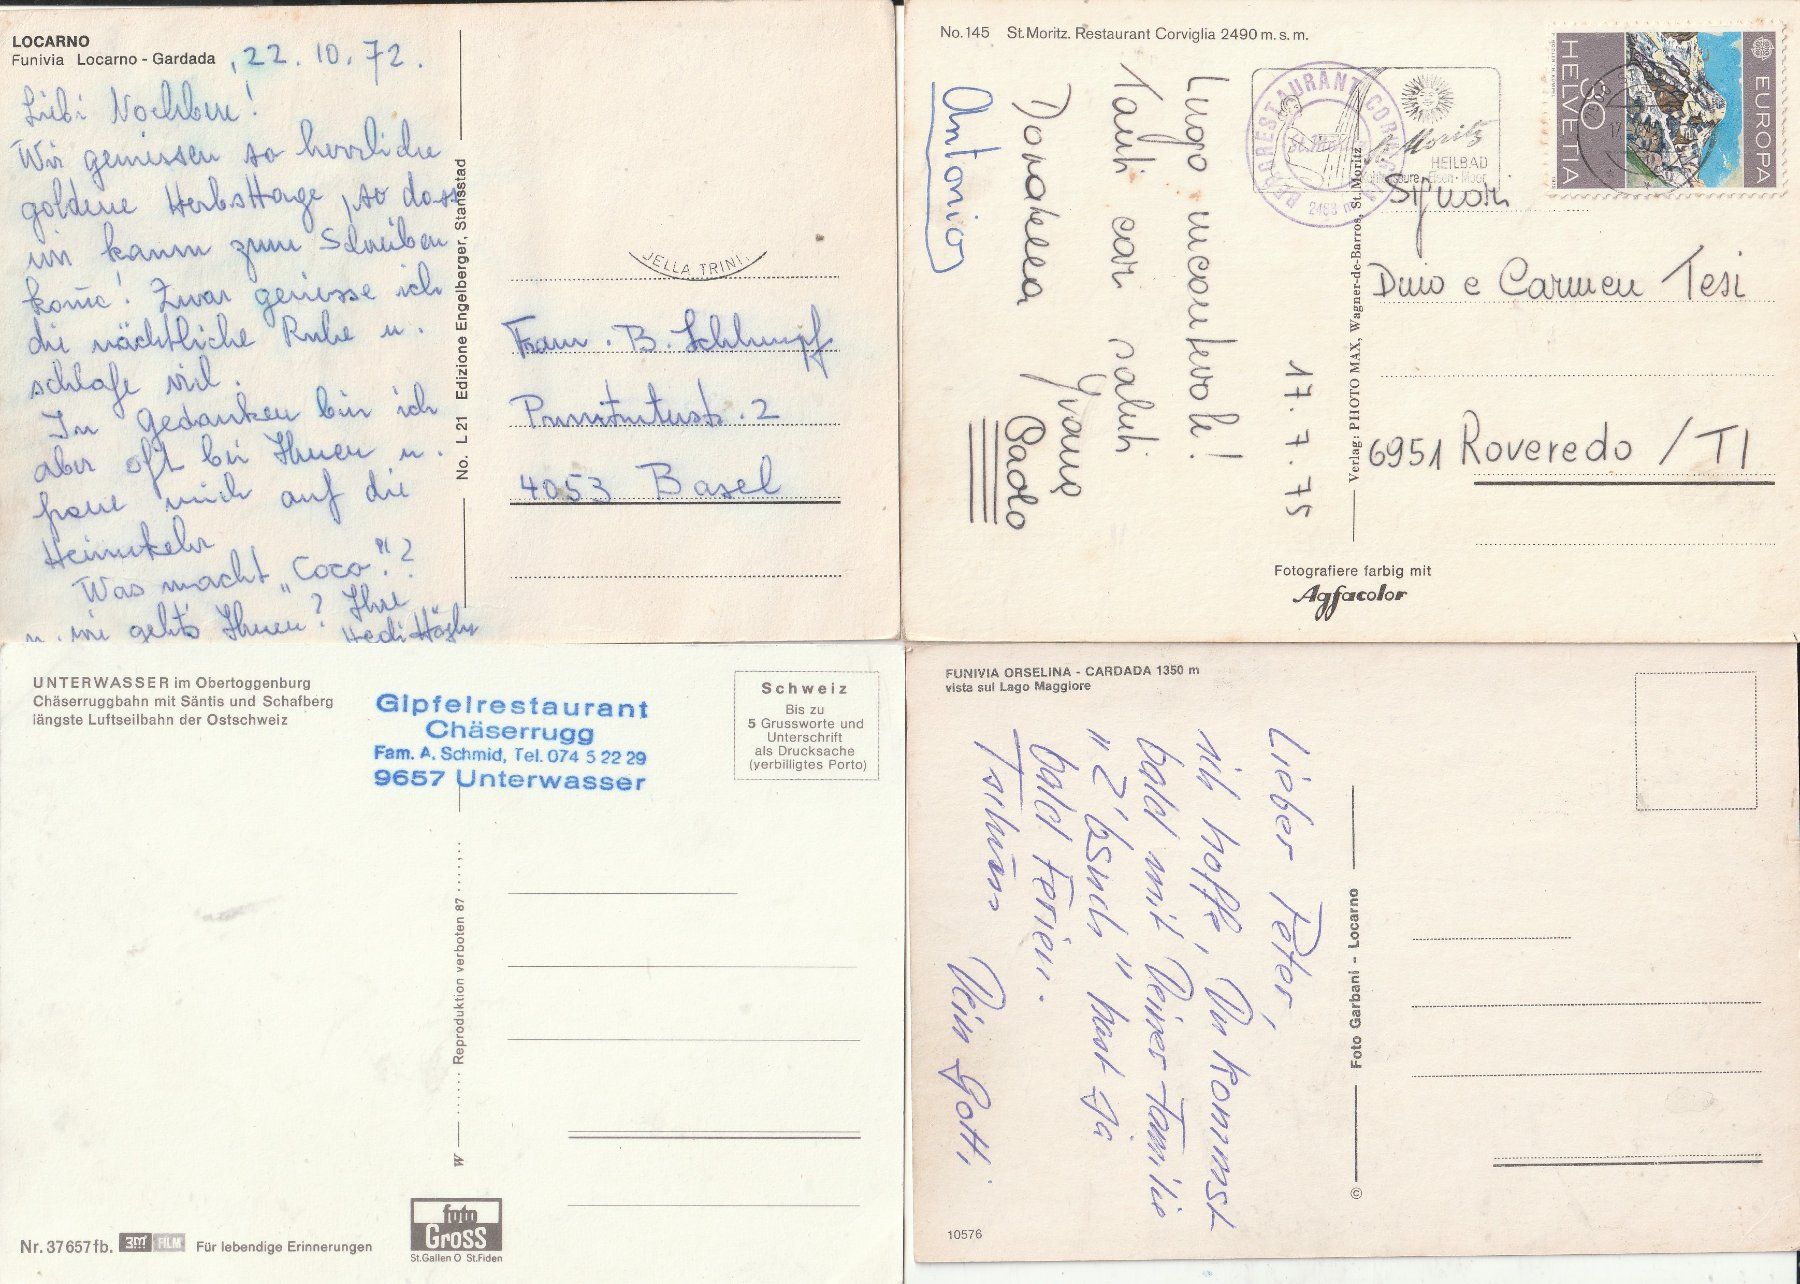 LOCARNO
Funivia Locarno - Gardada
, 22. 10. 72.
Wir geniessen so herrliche
goldene Herbsttage, so dass
wir kaum zum Schreiben
komme! Zwar geniesse ich
die nächtliche Ruhe u.
schlafe viel.
In Gedanken bin ich
aber oft bei Ihnen u.
freue mich auf die
Heimkehr
Was macht „Coco"?
u. wie geht's Ihnen? Ihre
Hedi
No. L 21 Edizione Engelberger, Stansstad
JELLA TRINI.
Frau. B. Schlumpf
2
4053 Basel
No. 145 St. Moritz. Restaurant Corviglia 2490 m. s. m.
17. 7. 75
Luogo incantevole!
Tanti cari saluti
Donatella Ivano
Paolo
Antonio
BERGRESTAURANT CORVIGLIA
St. Moritz
HEILBAD
Eisen - Moor
HELVETIA
30
EUROPA
Signori
Dino e Carmen Tesi
6951 Roveredo / TI
Verlag: PHOTO MAX, Wagner-de-Barros, St. Moritz
Fotografiere farbig mit
Agfacolor
UNTERWASSER im Obertoggenburg
Chäserruggbahn mit Säntis und Schafberg
längste Luftseilbahn der Ostschweiz
Gipfelrestaurant
Chäserrugg
Fam. A. Schmid, Tel. 074 5 22 29
9657 Unterwasser
Schweiz
Bis zu
5 Grussworte und
Unterschrift
als Drucksache
(verbilligtes Porto)
W Reproduktion verboten 87
Nr. 37657 fb. 3M FILM Für lebendige Erinnerungen
foto
GROSS
St. Gallen O St. Fiden
FUNIVIA ORSELINA - CARDADA 1350 m
vista sul Lago Maggiore
Lieber Peter,
ich hoffe, Du kommst
bald mit Deiner Familie
"z'bsuch" hast ja
bald Ferien.
Tschüss Dein Götti
© Foto Garbani - Locarno
10576